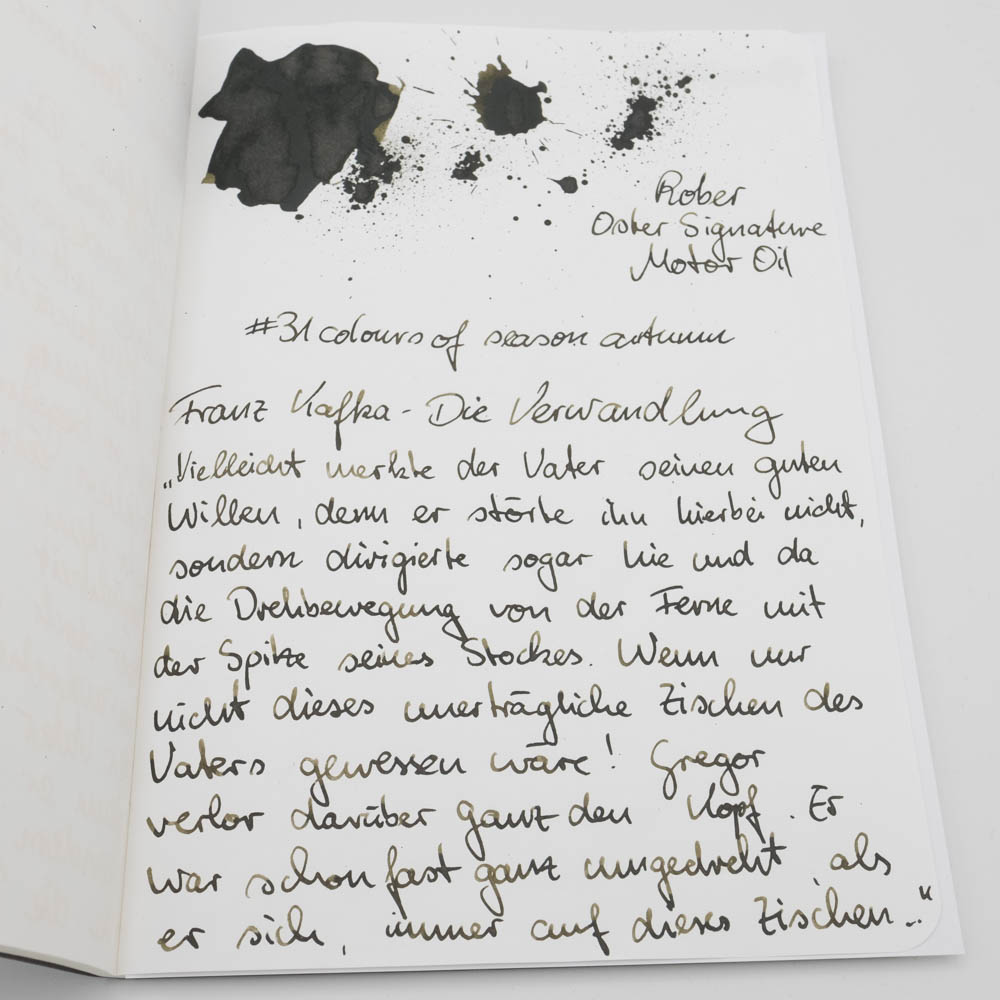 Rober
Oster Signature
Motor Oil
#31 colours of season autumn
Franz Kafka - Die Verwandlung
„Vielleicht merkte der Vater seinen guten
Willen, denn er störte ihn hierbei nicht,
sondern dirigierte sogar hie und da
die Drehbewegung von der Ferne mit
der Spitze seines Stockes. Wenn nur
nicht dieses unerträgliche Zischen des
Vaters gewessen wäre! Gregor
verlor darüber ganz den Kopf. Er
war schon fast ganz umgedreht, als
er sich, immer auf dieses Zischen..."